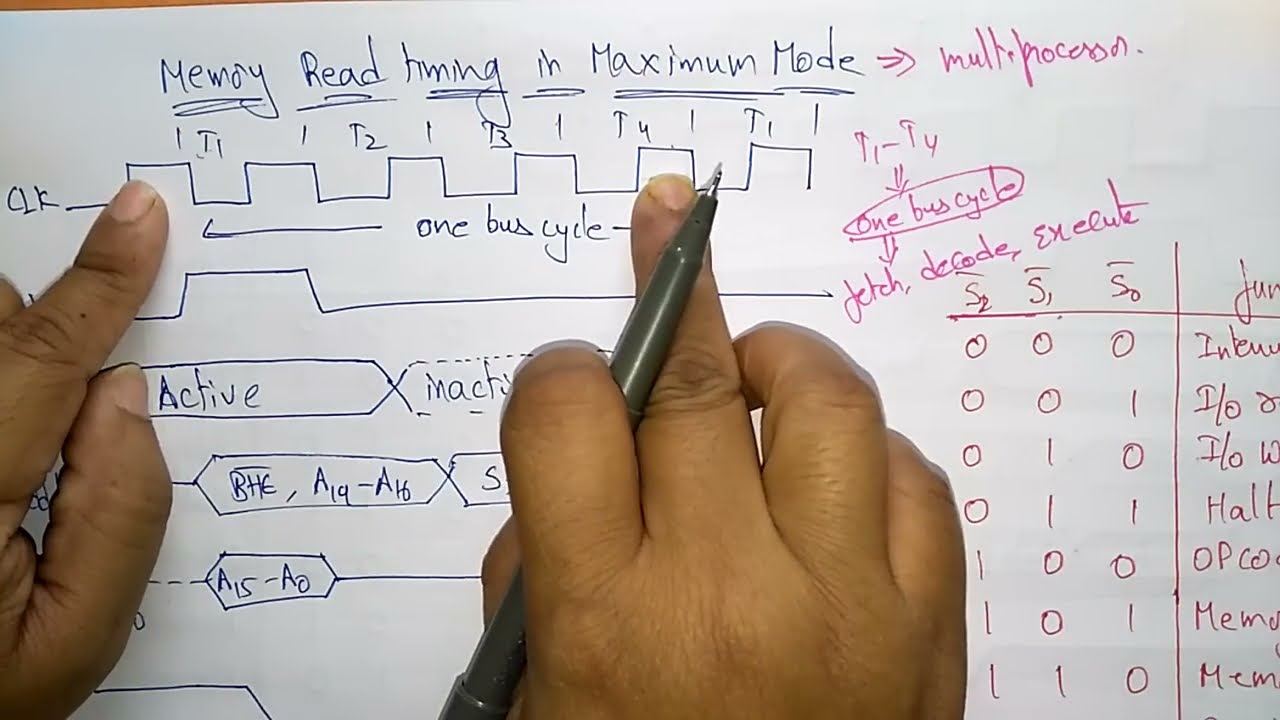 Memory Read timing in Maximum Mode ⇒ multiprocessor.
T1 T2 T3 T4 T1
CLK
one bus cycle
T1-T4
one bus cycle
fetch, decode, execute
Active
BHE, A19-A16 S
A15-A0
S2 S1 S0
0 0 0
0 0 1 I/O
0 1 0 I/O
0 1 1 Halt
1 0 0
1 0 1
1 1 0